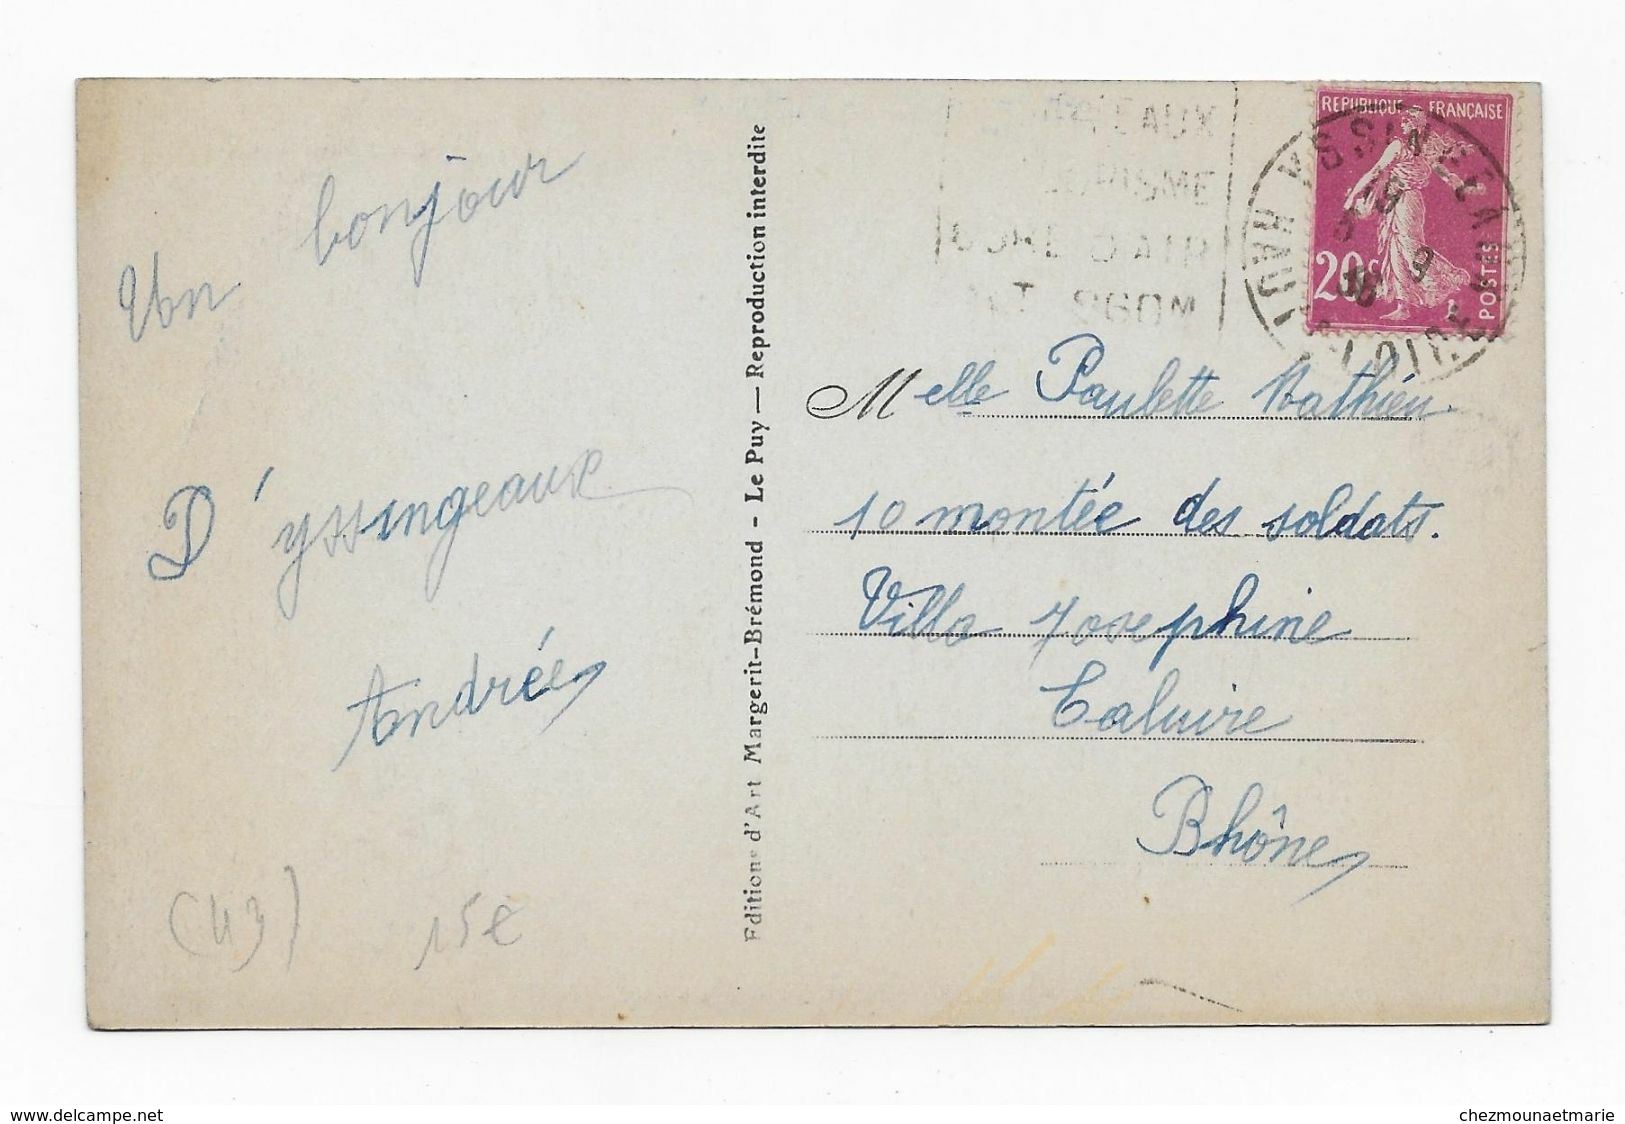 Un bonjour
D'yssingeaux
Andrée
(43) 15€
Editions d'Art Margerit-Brémond - Le Puy — Reproduction interdite
REPUBLIQUE FRANÇAISE
20c
POSTES
YSSINGEAUX
HAUTE-LOIRE
EAUX
TOURISME
CURE D'AIR
ALT 860M
Melle Paulette Mathieu.
10 montée des soldats.
Villa Josephine
Caluire
Rhône
www.delcampe.net
chezmounaetmarie